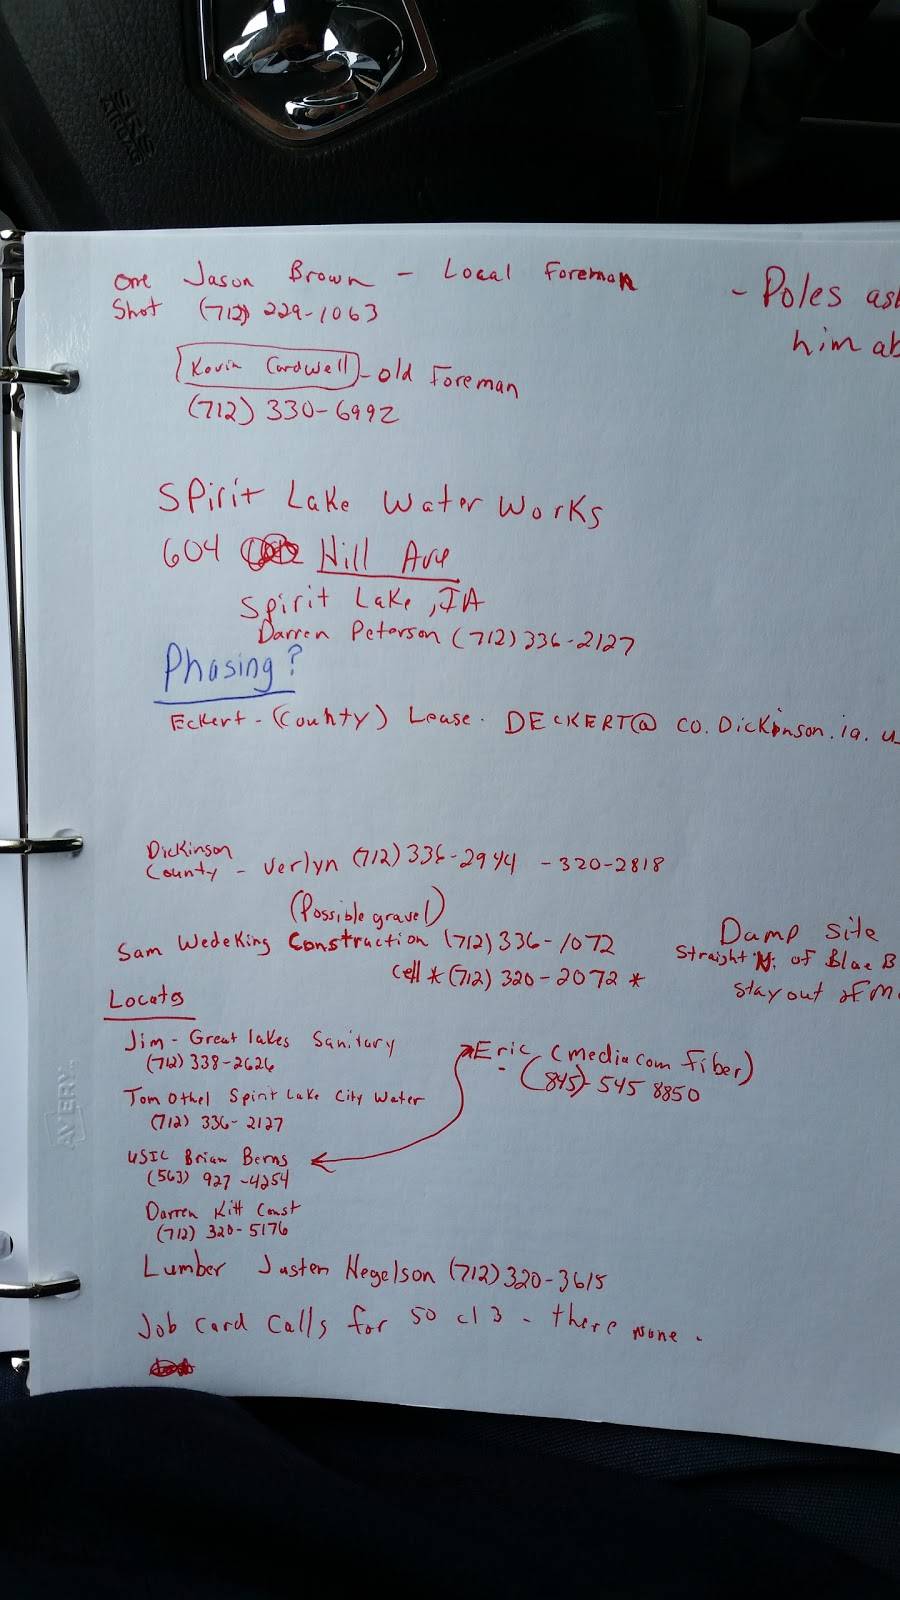 SRS
AIRBAG
one Jason Brown - Local Foreman
Shot (712) 229-1063
- Poles ask
him ab
Kevin Cardwell - old Foreman
(712) 330-6992
Spirit Lake Water Works
604 Hill Ave
Spirit Lake, IA
Darren Peterson (712) 336-2127
Phasing?
Eckert - (County) Lease. DECKERT@ co.Dickinson.ia.u
Dickinson
County - Verlyn (712) 336-2944 - 320-2818
(Possible gravel)
Sam WedeKing Construction (712) 336-1072
cell * (712) 320-2072 *
Damp site
Straight N. of Blae B
Stay out of M
Locates
Jim - Great lakes Sanitary
(712) 338-2626
Eric (mediacom fiber)
(845)-545 8850
Tom Othel Spirit Lake City Water
(712) 336-2127
USIC Brian Berns
(563) 927-4254
Darren Kitt Const
(712) 320-5176
Lumber Justen Hegelson (712) 320-3615
Job card calls for 50 cl 3 - there none.
AVERY